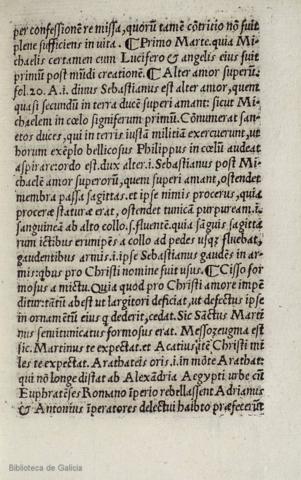 per confessionē re missa, quorū tamē cōtritio nō fuit
plene sufficiens in vita. ☾Primo Marte. quia Mi-
chaelis certamen cum Lucifero & angelis eius fuit
primū post mūdi creationē. ☾Alter amor superū.
fol. 20. A. i. diuus Sebastianus est alter amor, quem
quasi secundū in terra ducē superi amant: sicut Mi-
chaelem in cœlo signiferum primū. Cōnumerat san-
ctos duces, qui in terris iustā militiā exercuerunt, ut
horum exēplo bellicosus Philippus in cœlū audeat
aspirare: ordo est. dux alter. i. Sebastianus post Mi-
chaelē amor superorū, quem superi amant, ostendet
membra passa sagittas. et ipse nimis procerus, quia
proceræ staturæ erat, ostendet tunicā purpuream. i.
sanguineā ab alto collo. s. fluentē. quia sāguis sagitta
rum ictibus erumpēs a collo ad pedes usqꝫ fluebat,
gaudentibus armis. i. ipse Sebastianus gaudēs in ar-
mis: qbus pro Christi nomine fuit usus. ☾Cisso for
mosus amictu. Quia quod pro Christi amore impē
ditur: tātū abest ut largitori deficiat, ut defectus ipse
in ornamētū eius q dederit, cedat. Sic Sāctus Marti
nus semitunicatus formosus erat. Messozeugma est
sic. Martinus te expectat. et Acatius, itē Christi mi
les te expectat. Arathateis oris. i. in mōte Arathat:
qui nō longe distat ab Alexādria Aegypti urbe cū
Euphratēses Romano īperio rebellassent Adrianus
& Antonius īperatores delectui habito præfecerūt
Biblioteca de Galicia